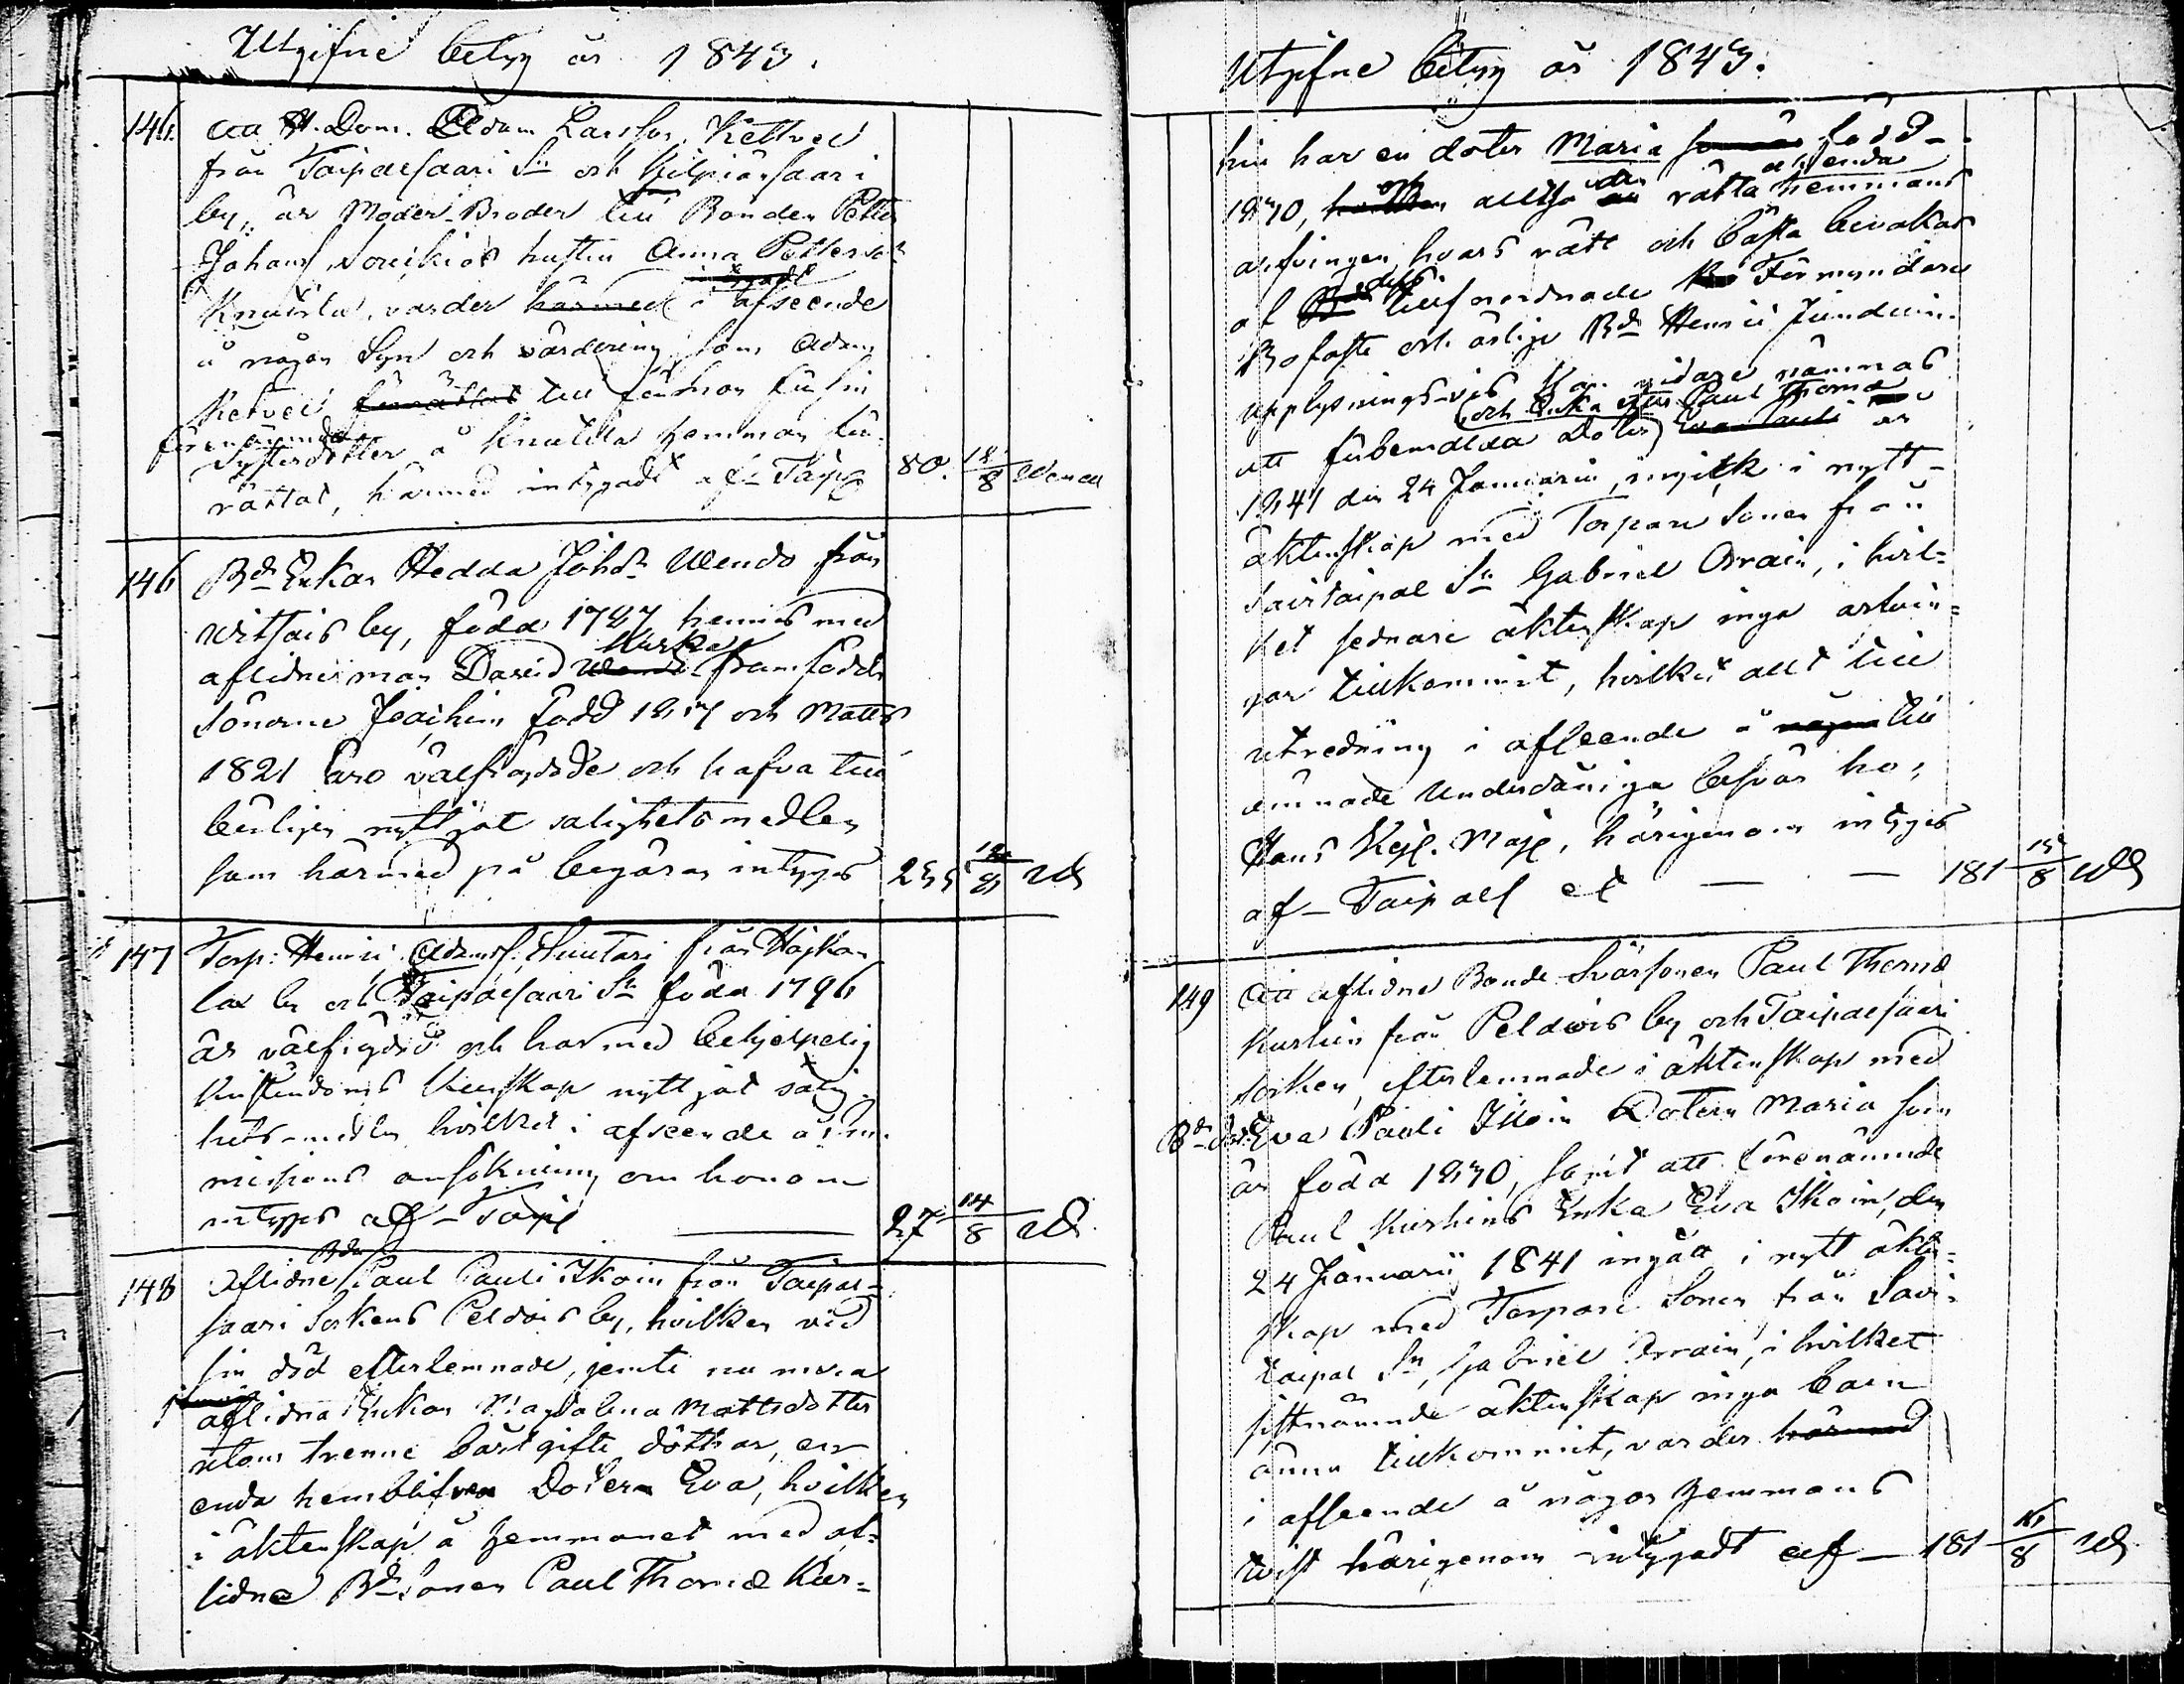 Utgifne betyg år 1843.
146. att H. Dom. Adam Larsson Kettvel
från Taipalsaari Sn och Kilpiänsaari
by, är Moder-Broder till Bonden Petter
Johansson hustru Anna Pettersdr
Knutila, varder härmed i afseende
å någon Syn och värdering som Adam
Ketvel förrättat till förmon för sin
förenämnda
Systerdotter å Knutila hemman för-
rättat, härmed intygadt af - Taip
80. 12/8 Wenell
146 Bd Enkan Hedda Johdr Wendo från
Vitsais by, född 1787 hennes med
Kurke
aflidne man David framfödda
Sönerne Joachim född 1817 och Matts
1821 äro välfrägdade och hafva till-
börligen nyttjat salighetsmedlen
som härmed på begäran intygas
255 12/8 Wll
147 Torp: Henric Adamss. Suutari från Haikan
lax by och Taipalsaari Sn född 1796
är välfrägdad och har med behjelpelig
Kristendoms kunskap nyttjat salig-
hets-medlen hvilket i afseende å im-
missions ansökning om honom
intygas af - Taipl
27 14/8 Wll
Bdn
148 Aflidne Paul Pauli Ikoin från Taipal-
saari Sockens Peldois by, hvilken vid
sin död efterlemnade, jemte nu mera
aflidna Enkan Magdalena Mattsdotter
utom trenne bort gifte döttrar, en
enda hemblifven Doter Eva, hvilken
i äktenskap å hemmanet med af-
lidne Bd Sonen Paul Thomæ Kur-
Utgifne betyg år 1843.
hin har en doter Maria född
1830, och alltså den rätta hemmans
arfvingen hvars rätt och bästa bevakas
af dess tillförordnade Förmyndare
Bofaste och ärlige Bd Henric
upplysningsvis kan vidare nämnas
och Enka efter Paul Thomæ
att förbemälda Doter Eva Pauli är
1841 den 24 Januarii, ingick i nytt
äktenskap med Torpare Sonen från
Savitaipal Sn Gabriel Orrain, i hvil-
ket sednare äktenskap inga arfvin-
gar tillkommit, hvilket allt till
utredning i afseende å till
ämnade Underdåniga besvär hos
Hans Kejs. Maj, härigenom intygas
af - Taipals et — —
181 15/8 Wll
149 Att aflidne Bonde Svärsonen Paul Thomæ
Kurhin från Peldois by och Taipalsaari
socken, efterlemnade i äktenskap med
Bd Dotr Eva Pauli Ikoin Dotern Maria som
är född 1830, samt att förenämnde
Paul Kurhins Enka Eva Ikoin, den
24 Januarii 1841 ingått i nytt äkten-
skap med Torpare Sonen från Savi-
taipal Sn, Gabriel Orrain, i hvilket
sistnämnde äktenskap inga barn
ännu tillkommit, varder härmed
i afseende å någon hemmans
tvist härigenom intygadt af - 181 16/8 Wll